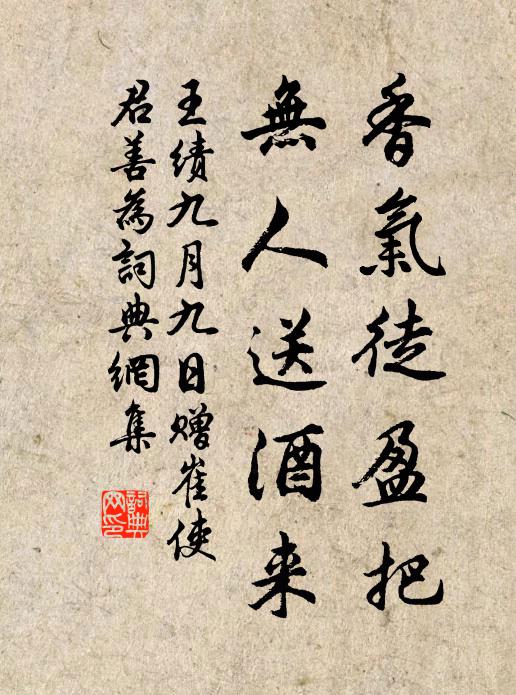 香氣徒盈把
無人送酒来
王績九月九日赠崔使
君善為詞典網集
詞典网印